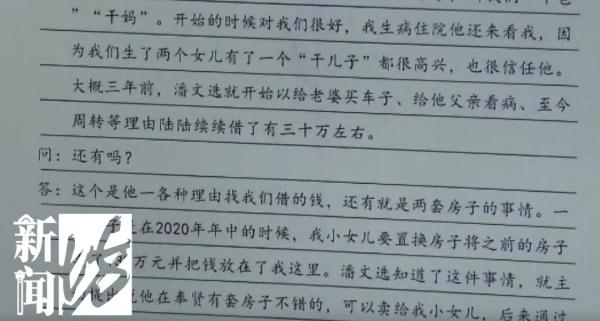 ”“干妈”。开始的时候对我们很好，我生病住院他还来看我，因
为我们生了两个女儿有了一个“干儿子”都很高兴，也很信任他。
大概三年前，潘文选就开始以给老婆买车子、给他父亲看病、至今
周转等理由陆陆续续借了有三十万左右。
问：还有吗？
答：这个是他一各种理由找我们借的钱，还有就是两套房子的事情。一
在2020年年中的时候，我小女儿要置换房子将之前的房子
万元并把钱放在了我这里。潘文选知道了这件事情，就主
他在奉贤有套房子不错的，可以卖给我小女儿，后来通过
新闻